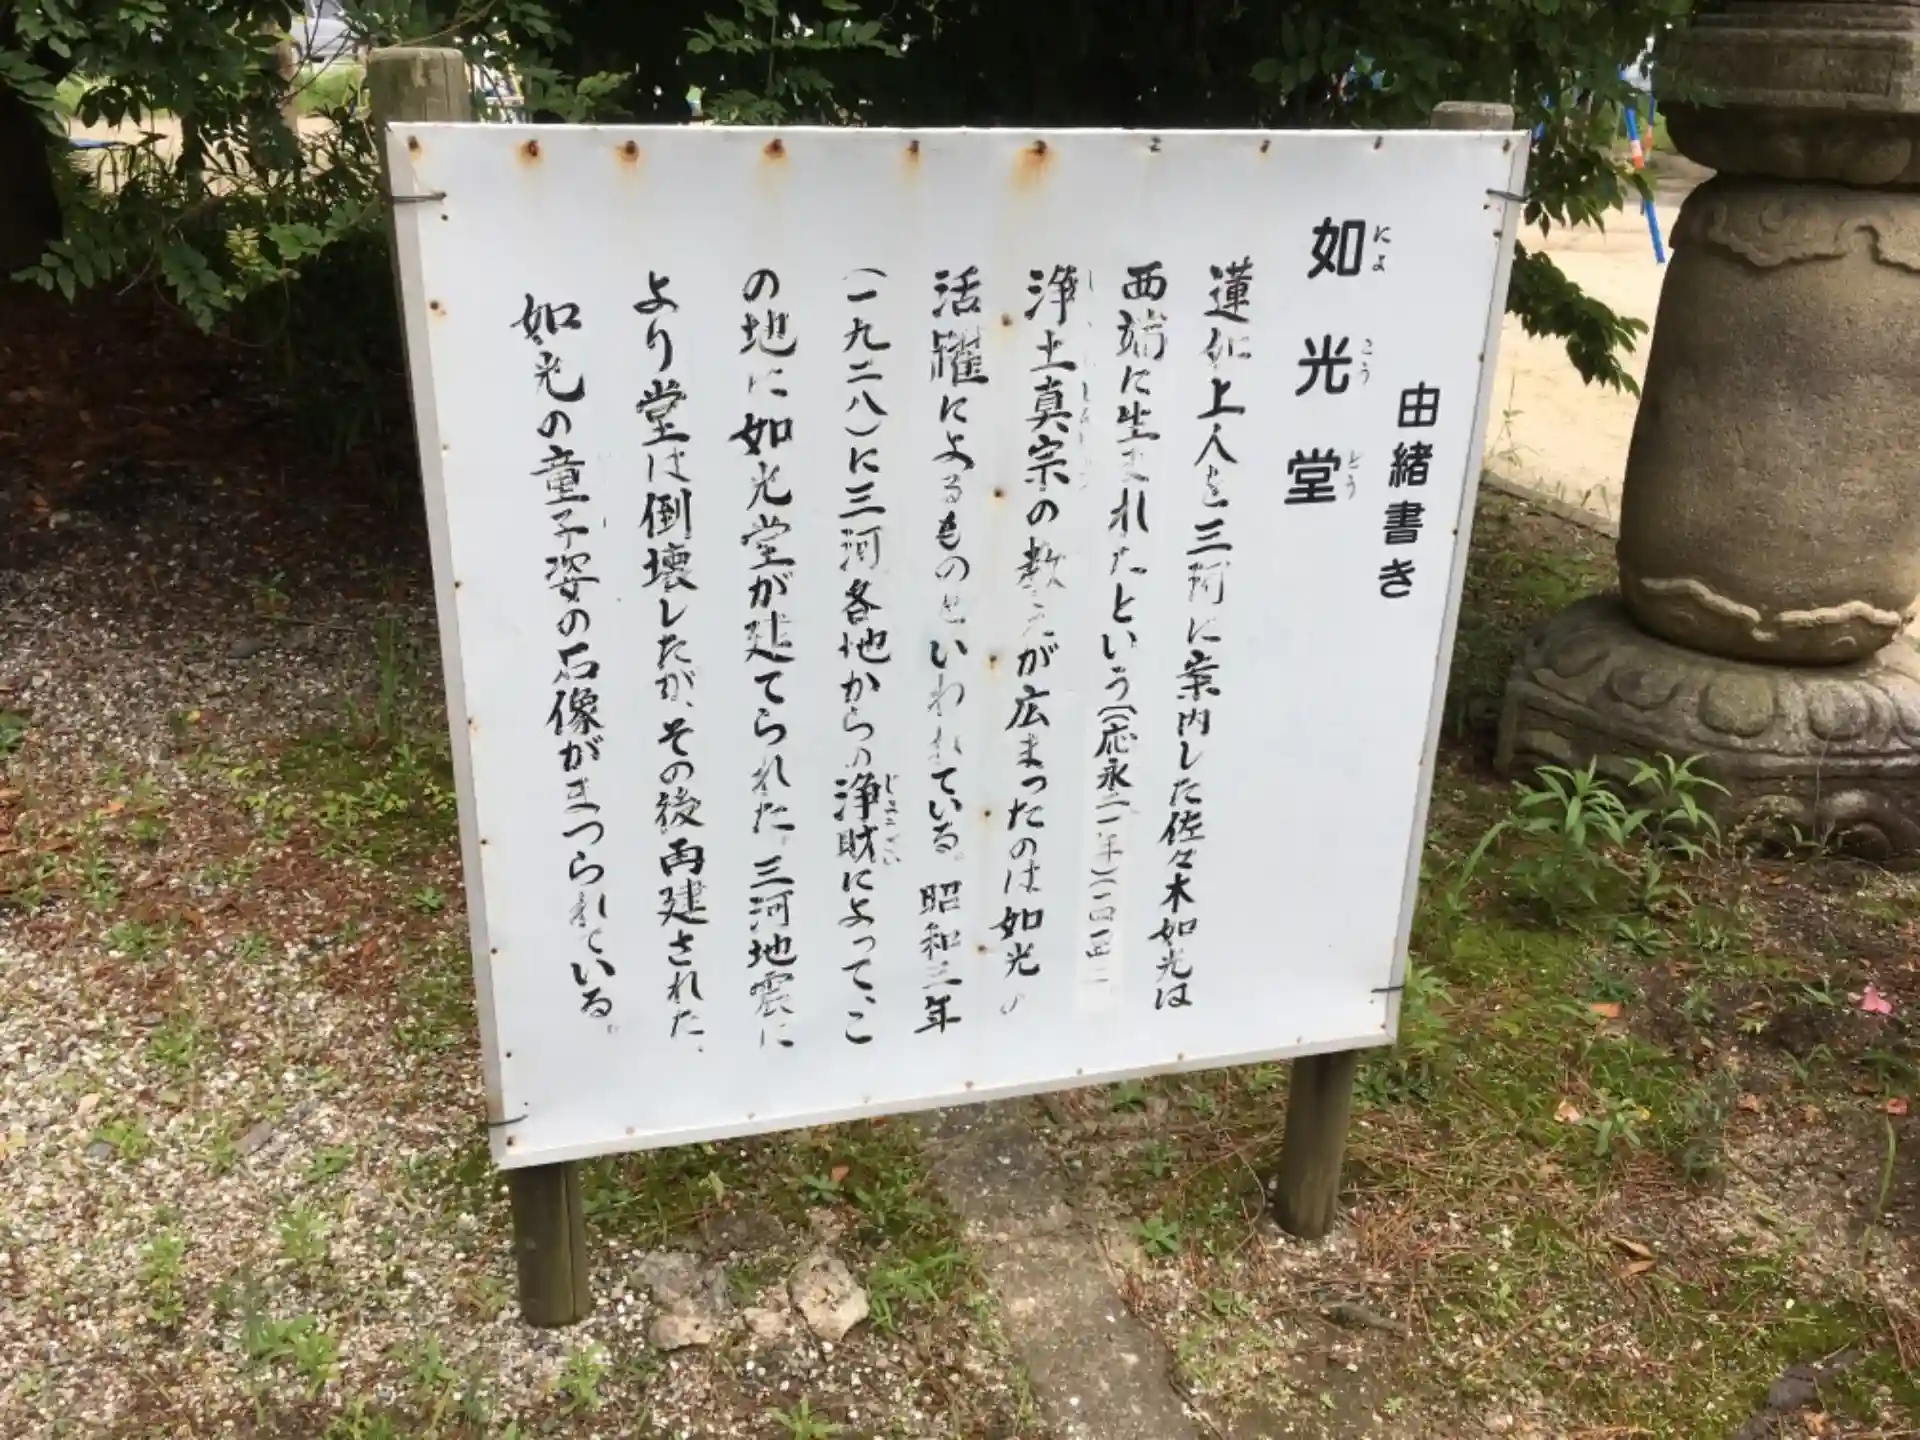 由緒書き
如光堂
にょ こう どう
蓮如上人を三河に案内した佐々木如光は
西端に生まれたという(応永二一年)(一四一四)
浄土真宗の教えが広まったのは如光の
活躍によるものといわれている。昭和三年
(一九二八)に三河各地からの浄財によって、こ
じょうざい
の地に如光堂が建てられた。三河地震に
より堂は倒壊したが、その後再建された、
如光の童子姿の石像がまつられている。